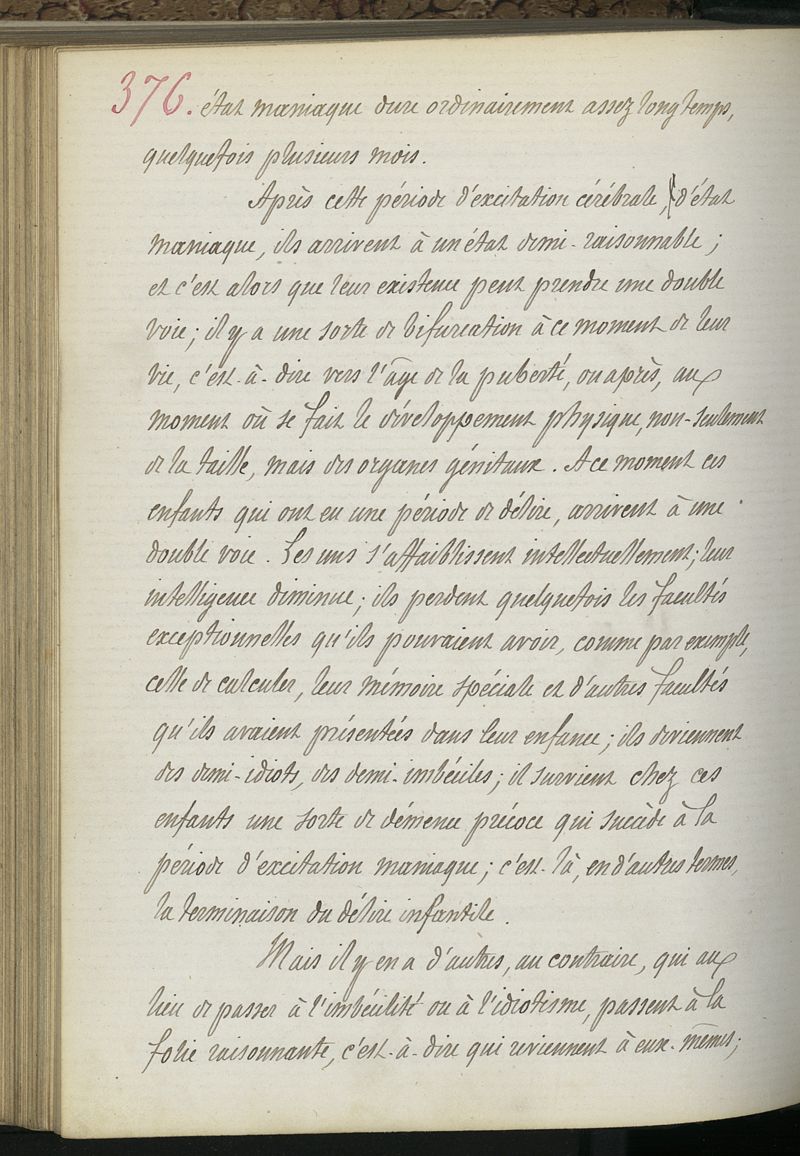 376. état maniaque dure ordinairement assez longtemps,
quelquefois plusieurs mois.
Après cette période d'excitation cérébrale, d'état
maniaque, ils arrivent à un état demi-raisonnable ;
et c'est alors que leur existence peut prendre une double
voie ; il y a une sorte de bifurcation à ce moment de leur
vie, c'est-à-dire vers l'âge de la puberté, ou après, au
moment où se fait le développement physique, non-seulement
de la taille, mais des organes génitaux. A ce moment ces
enfants qui ont eu une période de délire, arrivent à une
double voie. Les uns s'affaiblissent intellectuellement ; leur
intelligence diminue ; ils perdent quelquefois les facultés
exceptionnelles qu'ils pouvaient avoir, comme par exemple,
celle de calculer, leur mémoire spéciale et d'autres facultés
qu'ils avaient présentées dans leur enfance ; ils deviennent
des demi-idiots, des demi-imbéciles ; il survient chez ces
enfants une sorte de démence précoce qui succède à la
période d'excitation maniaque ; c'est-là, en d'autres termes,
la terminaison du délire infantile.
Mais il y en a d'autres, au contraire, qui au
lieu de passer à l'imbécilité ou à l'idiotisme, passent à la
folie raisonnante, c'est-à-dire qui reviennent à eux-mêmes ;